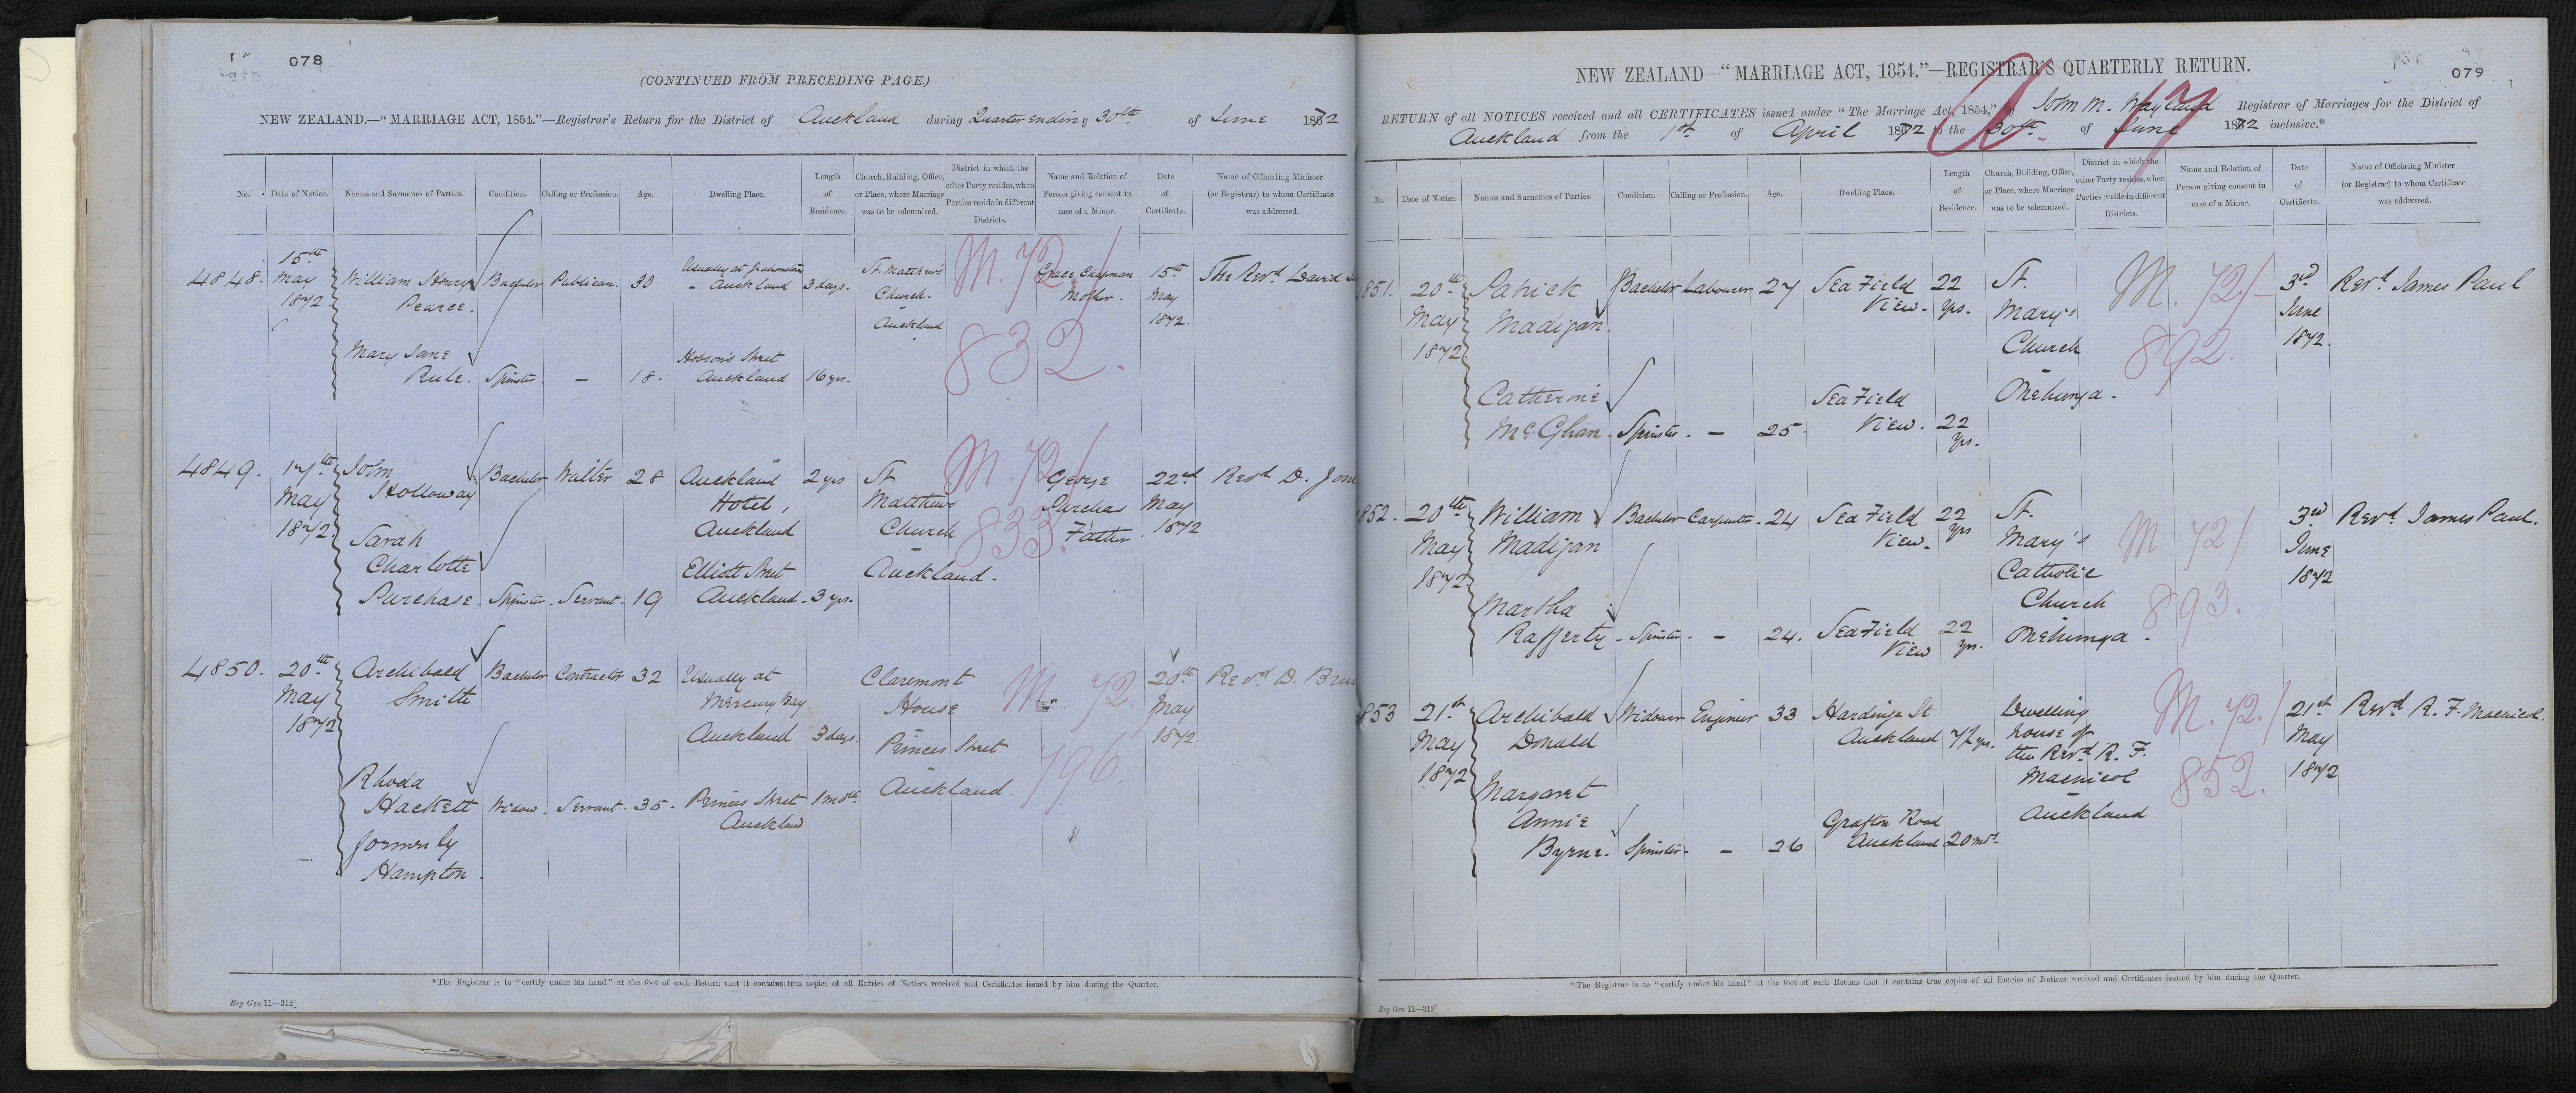 078
(CONTINUED FROM PRECEDING PAGE.)
NEW ZEALAND.—"MARRIAGE ACT, 1854."—Registrar's Return for the District of Auckland during Quarter ending 30th of June 1872
No. Date of Notice. Names and Surnames of Parties. Condition. Calling or Profession. Age. Dwelling Place. Length of Residence. Church, Building, Office, or Place, where Marriage was to be solemnized. District in which the other Party resides, when Parties reside in different Districts. Name and Relation of Person giving consent in case of a Minor. Date of Certificate. Name of Officiating Minister (or Registrar) to whom Certificate was addressed.
4848. 15th May 1872 William Henry Pearce. Bachelor Publican. 30 Usually at Grahamstown - Auckland 3 days. St. Matthew's Church. Auckland M. 72/ 832. Grace Chapman Mother. 15th May 1872. The Revd. David
Mary Jane Rule. Spinster. - 18. Hobson's Street Auckland 16 yrs.
4849. 17th May 1872. John Holloway Bachelor Waiter 28 Auckland Hotel, Auckland 2 yrs St Matthews Church Auckland. M. 72/ 833. George Purchas Father. 22nd May 1872 Revd D.
Sarah Charlotte Purchase. Spinster. Servant. 19 Elliott Street Auckland. 3 yrs.
4850. 20th May 1872 Archibald Smith Bachelor Contractor 32 Usually at Mercury Bay Auckland 3 days. Claremont House Princes Street Auckland. M. 72. 796. 20th May 1872. Revd. D.
Rhoda Hackett formerly Hampton. Widow. Servant. 35. Princes Street Auckland 1 mth.
*The Registrar is to "certify under his hand" at the foot of each Return that it contains true copies of all Entries of Notices received and Certificates issued by him during the Quarter.
Reg Gen 11—312]
079
NEW ZEALAND—"MARRIAGE ACT, 1854."—REGISTRAR'S QUARTERLY RETURN.
RETURN of all NOTICES received and all CERTIFICATES issued under "The Marriage Act, 1854," by John M. Wayland Registrar of Marriages for the District of
Auckland from the 1st of April 1872 to the 30th of June 1872 inclusive.*
No. Date of Notice. Names and Surnames of Parties. Condition. Calling or Profession. Age. Dwelling Place. Length of Residence. Church, Building, Office, or Place, where Marriage was to be solemnized. District in which the other Party resides, when Parties reside in different Districts. Name and Relation of Person giving consent in case of a Minor. Date of Certificate. Name of Officiating Minister (or Registrar) to whom Certificate was addressed.
851. 20th May 1872 Patrick Madigan. Bachelor Labourer 27 Sea Field View. 22 yrs. St. Mary's Church - Onehunga. M. 72/ 892. 3rd June 1872. Revd. James Paul
Catherine McGhan. Spinster. - 25. Sea Field View. 22 yrs.
852. 20th May 1872 William Madigan Bachelor Carpenter. 24 Sea Field View. 22 yrs St. Mary's Catholic Church Onehunga. M 72/ 893. 3rd June 1872 Revd James Paul.
Martha Rafferty. Spinster. - 24. Sea Field View 22 yrs.
853 21st May 1872 Archibald Donald Widower Engineer 33 Hardinge St Auckland 7½ yrs. Dwelling house of the Revd. R. F. Macnicol - Auckland M. 72./ 852. 21st May 1872 Revd. R. F. Macnicol.
Margaret Annie Byrne. Spinster. - 26 Grafton Road Auckland 20 mos.
*The Registrar is to "certify under his hand" at the foot of each Return that it contains true copies of all Entries of Notices received and Certificates issued by him during the Quarter.
Reg Gen 11—312]